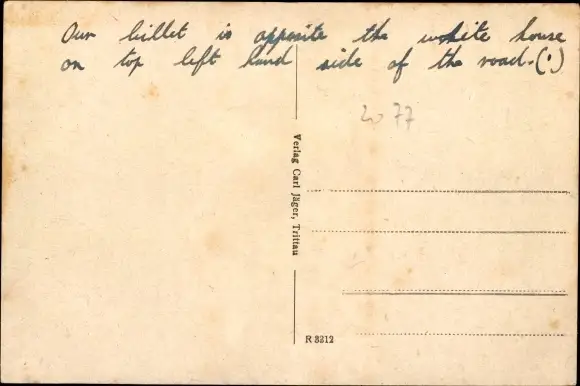 Our billet is opposite the white house
on top left hand side of the road. (•)
2077
Verlag Carl Jäger, Trittau
R 8212